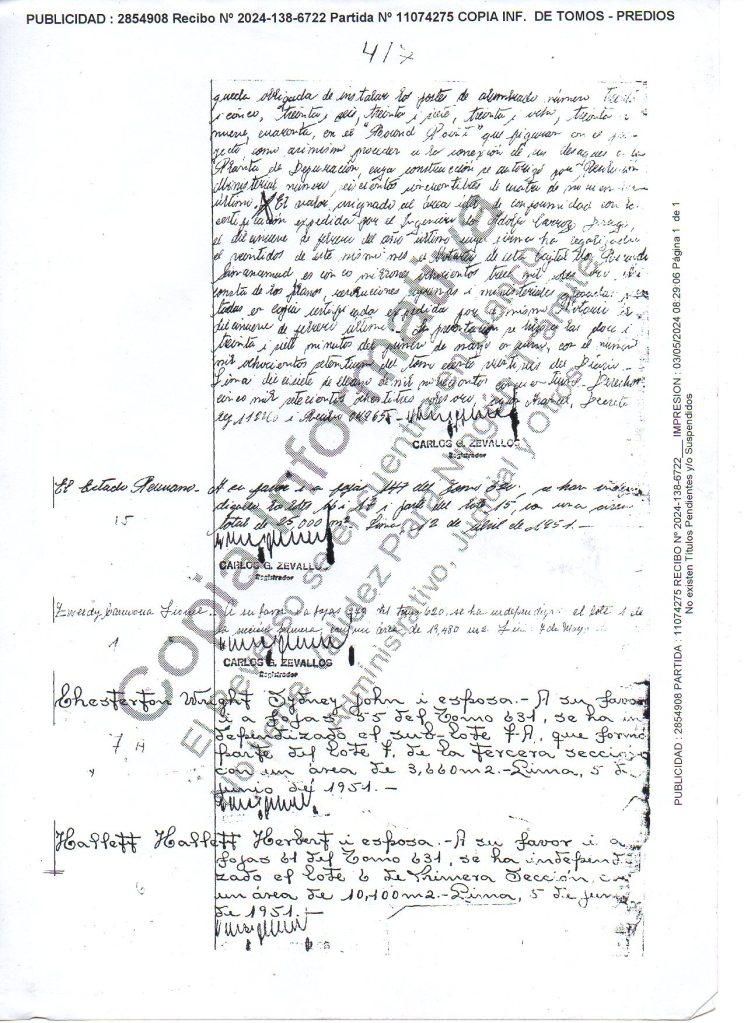 PUBLICIDAD : 2854908 Recibo Nº 2024-138-6722 Partida Nº 11074275 COPIA INF. DE TOMOS - PREDIOS
417
queda obligada de instalar los postes de alumbrado número treinta
i cinco, treinta i seis, treinta i siete, treinta i ocho, treinta i
nueve, cuarenta, en el "Round Point" que figuran en el
yecto como asimismo proceder a la conexión de sus desagues a la
Planta de Depuración, cuya construcción se autorizó por Resolución
Ministerial número
último. El valor asignado al área de conformidad con la
certificación expedida por el Ingeniero Adolfo
el diecinueve de febrero del año último cuya firma ha legalizado
el veintidos de este mismo mes el Notario de esta capital
es cinco millones ochocientos trece mil
consta de los planos, resoluciones supremas i ministeriales
tadas en copia certificada expedida por el mismo Notario el
diecinueve de febrero último. La presentación se hizo a las doce i
treinta i siete minutos del de mayo en curso, con el número
mil ochocientos del tomo ciento del Diario.
Lima diecisiete de de mil novecientos Derechos
cinco mil setecientos Decreto
Ley 11240 i Recibo
CARLOS G. ZEVALLOS
Registrador
El Estado Peruano.- A su favor i a fojas 447 del Tomo se han inde
15
los lotes 16 i 17 i parte del lote 15, con una area
total de 25,000 m2. Lima, 12 de abril de 1951.-
CARLOS G. ZEVALLOS
Registrador
A su favor i a fojas 949 del tomo 620, se ha independizado el lote 1 de
1
la sección primera, con un área de 19,480 m2. Lima 7 de Mayo
CARLOS G. ZEVALLOS
Registrador
Chesterton Wright Sydney John i esposa.- A su favor
i a fojas 55 del Tomo 631, se ha in
dependizado el sub-lote 7A, que forma
7 A
parte del lote 7, de la tercera sección
con un área de 3,660m2.-Lima, 5 de
junio de 1951.-
Hallett Hallett Herbert i esposa.-A su favor i a
fojas 61 del Tomo 631, se ha independi
6
zado el lote 6 de Primera Sección, con
un área de 10,100m2.-Lima, 5 de junio
de 1951.-
Copia Informativa
El Reverso se encuentra en blanco
No tiene Validez Para Ningún Trámite
Administrativo, Judicial y Otros
PUBLICIDAD : 2854908 PARTIDA : 11074275 RECIBO Nº 2024-138-6722___ IMPRESION : 03/05/2024 08:29:06 Página 1 de 1
No existen Títulos Pendientes y/o Suspendidos